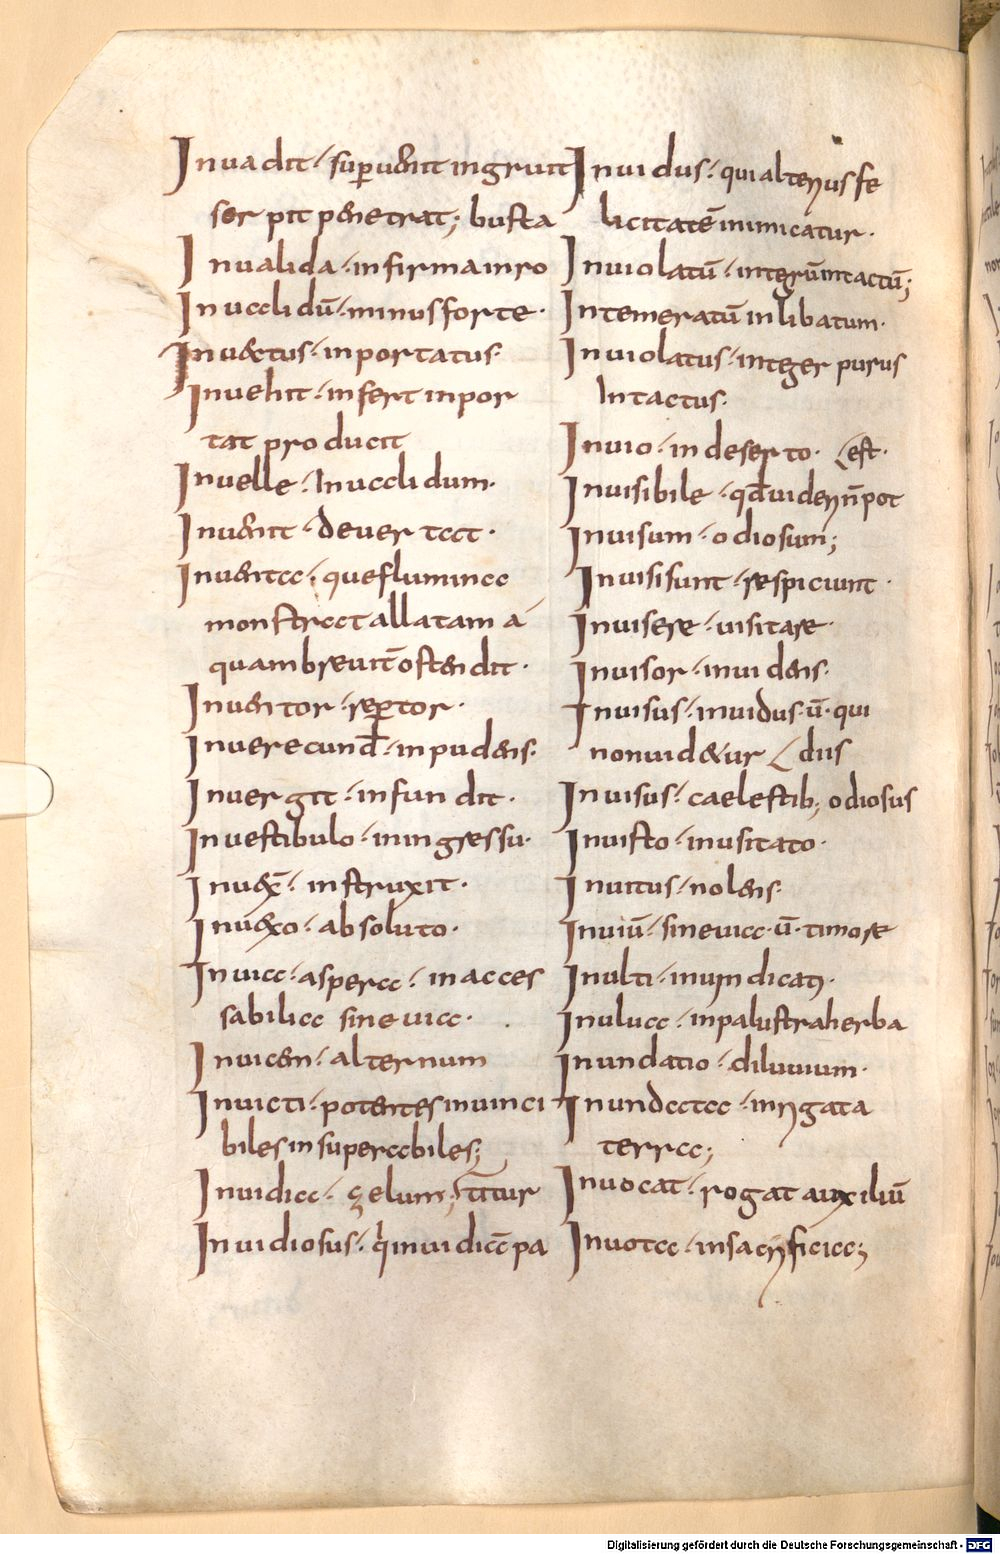 Inuadit · superuenit ingruit
serpit penetrat; busta
Inualida · infirma inro
Inualidū · minus forte ·
Inuectus · inportatus ·
Inuehit · infert inpor
tat producit
Inuelle · Inualidum ·
Inuenit · deuertat ·
Inuenta · que flumina
monstrat allatam a
quam breuit ostendit ·
Inuentor · reptor ·
Inuerecund · inpudens ·
Inuergit · infundit ·
Inuestibulo · iningressu ·
Inuex̄ · instruxit ·
Inuexo · absoluto ·
Inuia · aspera · inacces
sabilia sine uia ·
Inuicem · alternum
Inuicti · potentes inuinci
biles insuperabiles;
Inuidia · zelum; titur
Inuidiosus · qi inuidiā pa
Inuidus · qui alterius fe
licitatē inimicatur ·
Inuiolatū · integrū intactū;
Intemeratū inlibatum ·
Inuiolatus · integer purus
Intactus ·
Inuio · in deserto · est ·
Inuisibile · qd uideri n̄ pot
Inuisum · odiosum;
Inuisi sunt · respiciunt ·
Inuisere · uisitare ·
Inuisor · inuidens ·
Inuisus · inuidus · ū · qui
non uidetur dus
Inuisus · caelestib; odiosus
Inuisto · inusitato ·
Inuitus · nolens ·
Inuiū · sine uia · ū · timore
Inulti · inuindicati ·
Inulua · inpalustra herba
Inundatio · diluuium ·
Inundata · inrigata
terra;
Inuocat · rogat auxiliū
Inuota · insacrificia;
Digitalisierung gefördert durch die Deutsche Forschungsgemeinschaft - DFG